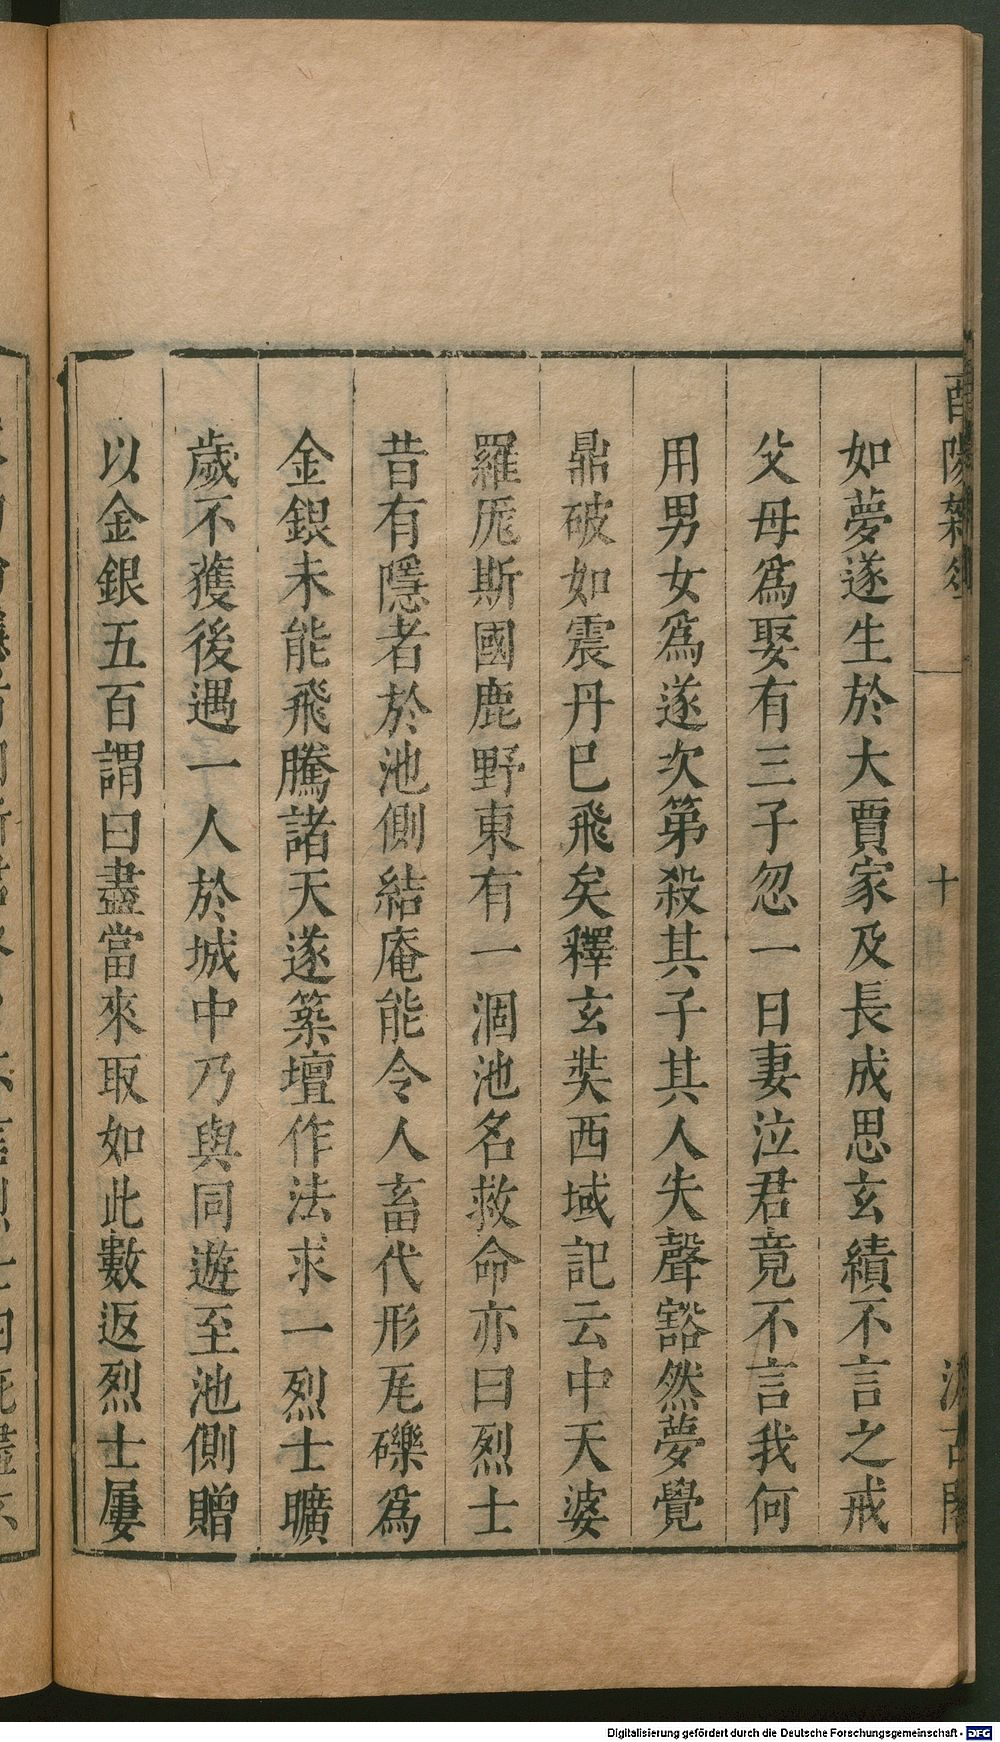 如夢遂生於大賈家及長成思玄績不言之戒
父母爲娶有三子忽一日妻泣君竟不言我何
用男女爲遂次第殺其子其人失聲豁然夢覺
鼎破如震丹已飛矣釋玄奘西域記云中天婆
羅㡿斯國鹿野東有一涸池名救命亦曰烈士
昔有隱者於池側結庵能令人畜代形瓦礫爲
金銀未能飛騰諸天遂築壇作法求一烈士曠
歲不獲後遇一人於城中乃與同遊至池側贈
以金銀五百謂曰盡當來取如此數返烈士屢
酉陽雜俎
十
汲古閣
Digitalisierung gefördert durch die Deutsche Forschungsgemeinschaft - DFG